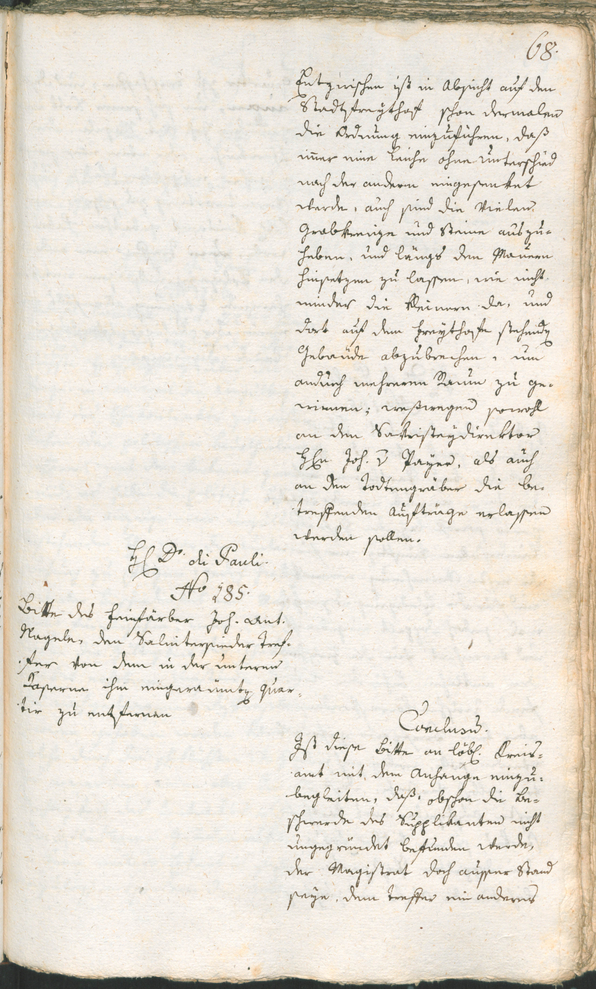 68.
Entzwischen ist in Absicht auf den
Stadtfreythof schon dermalen
die Ordnung einzuführen, daß
immer eine Leiche ohne Unterschied
nach der andern eingesenket
werde, auch sind die vielen
Grabkreuze und Steine auszu-
heben, und längs den Mauern
hinsetzen zu lassen, wie nicht
minder die kleinern da, und
dort auf dem Freythofe stehende
Gebäude abzubrechen, um
andurch mehreren Raum zu ge-
winnen; weßwegen sowohl
an dem Sakristeydirektor
Hhn Joh. v Payer, als auch
an den Todtengräber die be-
treffenden Aufträge erlassen
werden sollen.
HE Dr. di Pauli.
No 185.
Bitte des Feinfärber Joh. Ant.
Nagele, den Salitersieder Tref-
fer von dem in der unteren
Kaserne ihm eingeraumte Quar-
tir zu entfernen
Conclusum.
Ist diese Bitte an löbl. Kreis-
amt mit dem Anhange einzu-
begleiten, daß, obschon die Be-
schwerde des Supplikanten nicht
ungegründet befunden werde,
der Magistrat doch ausser Stand
seye, dem Treffer ein anderes